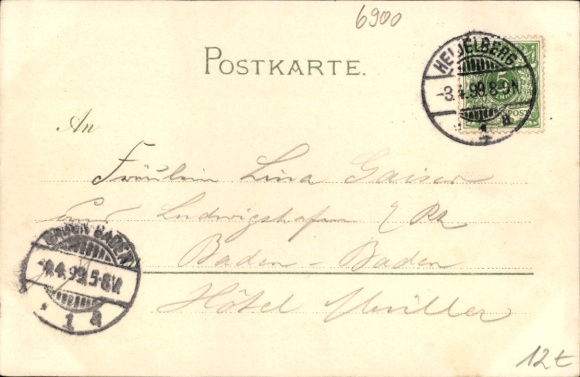 6900
POSTKARTE.
HEIDELBERG
-3.4.99.8-9N
1 a
5
An
Fräulein Lina Gaiser
aus Ludwigshafen a/Rh
Baden-Baden
Hôtel Müller
BADEN BADEN
4.4.99.5-8V.
1 a
12t